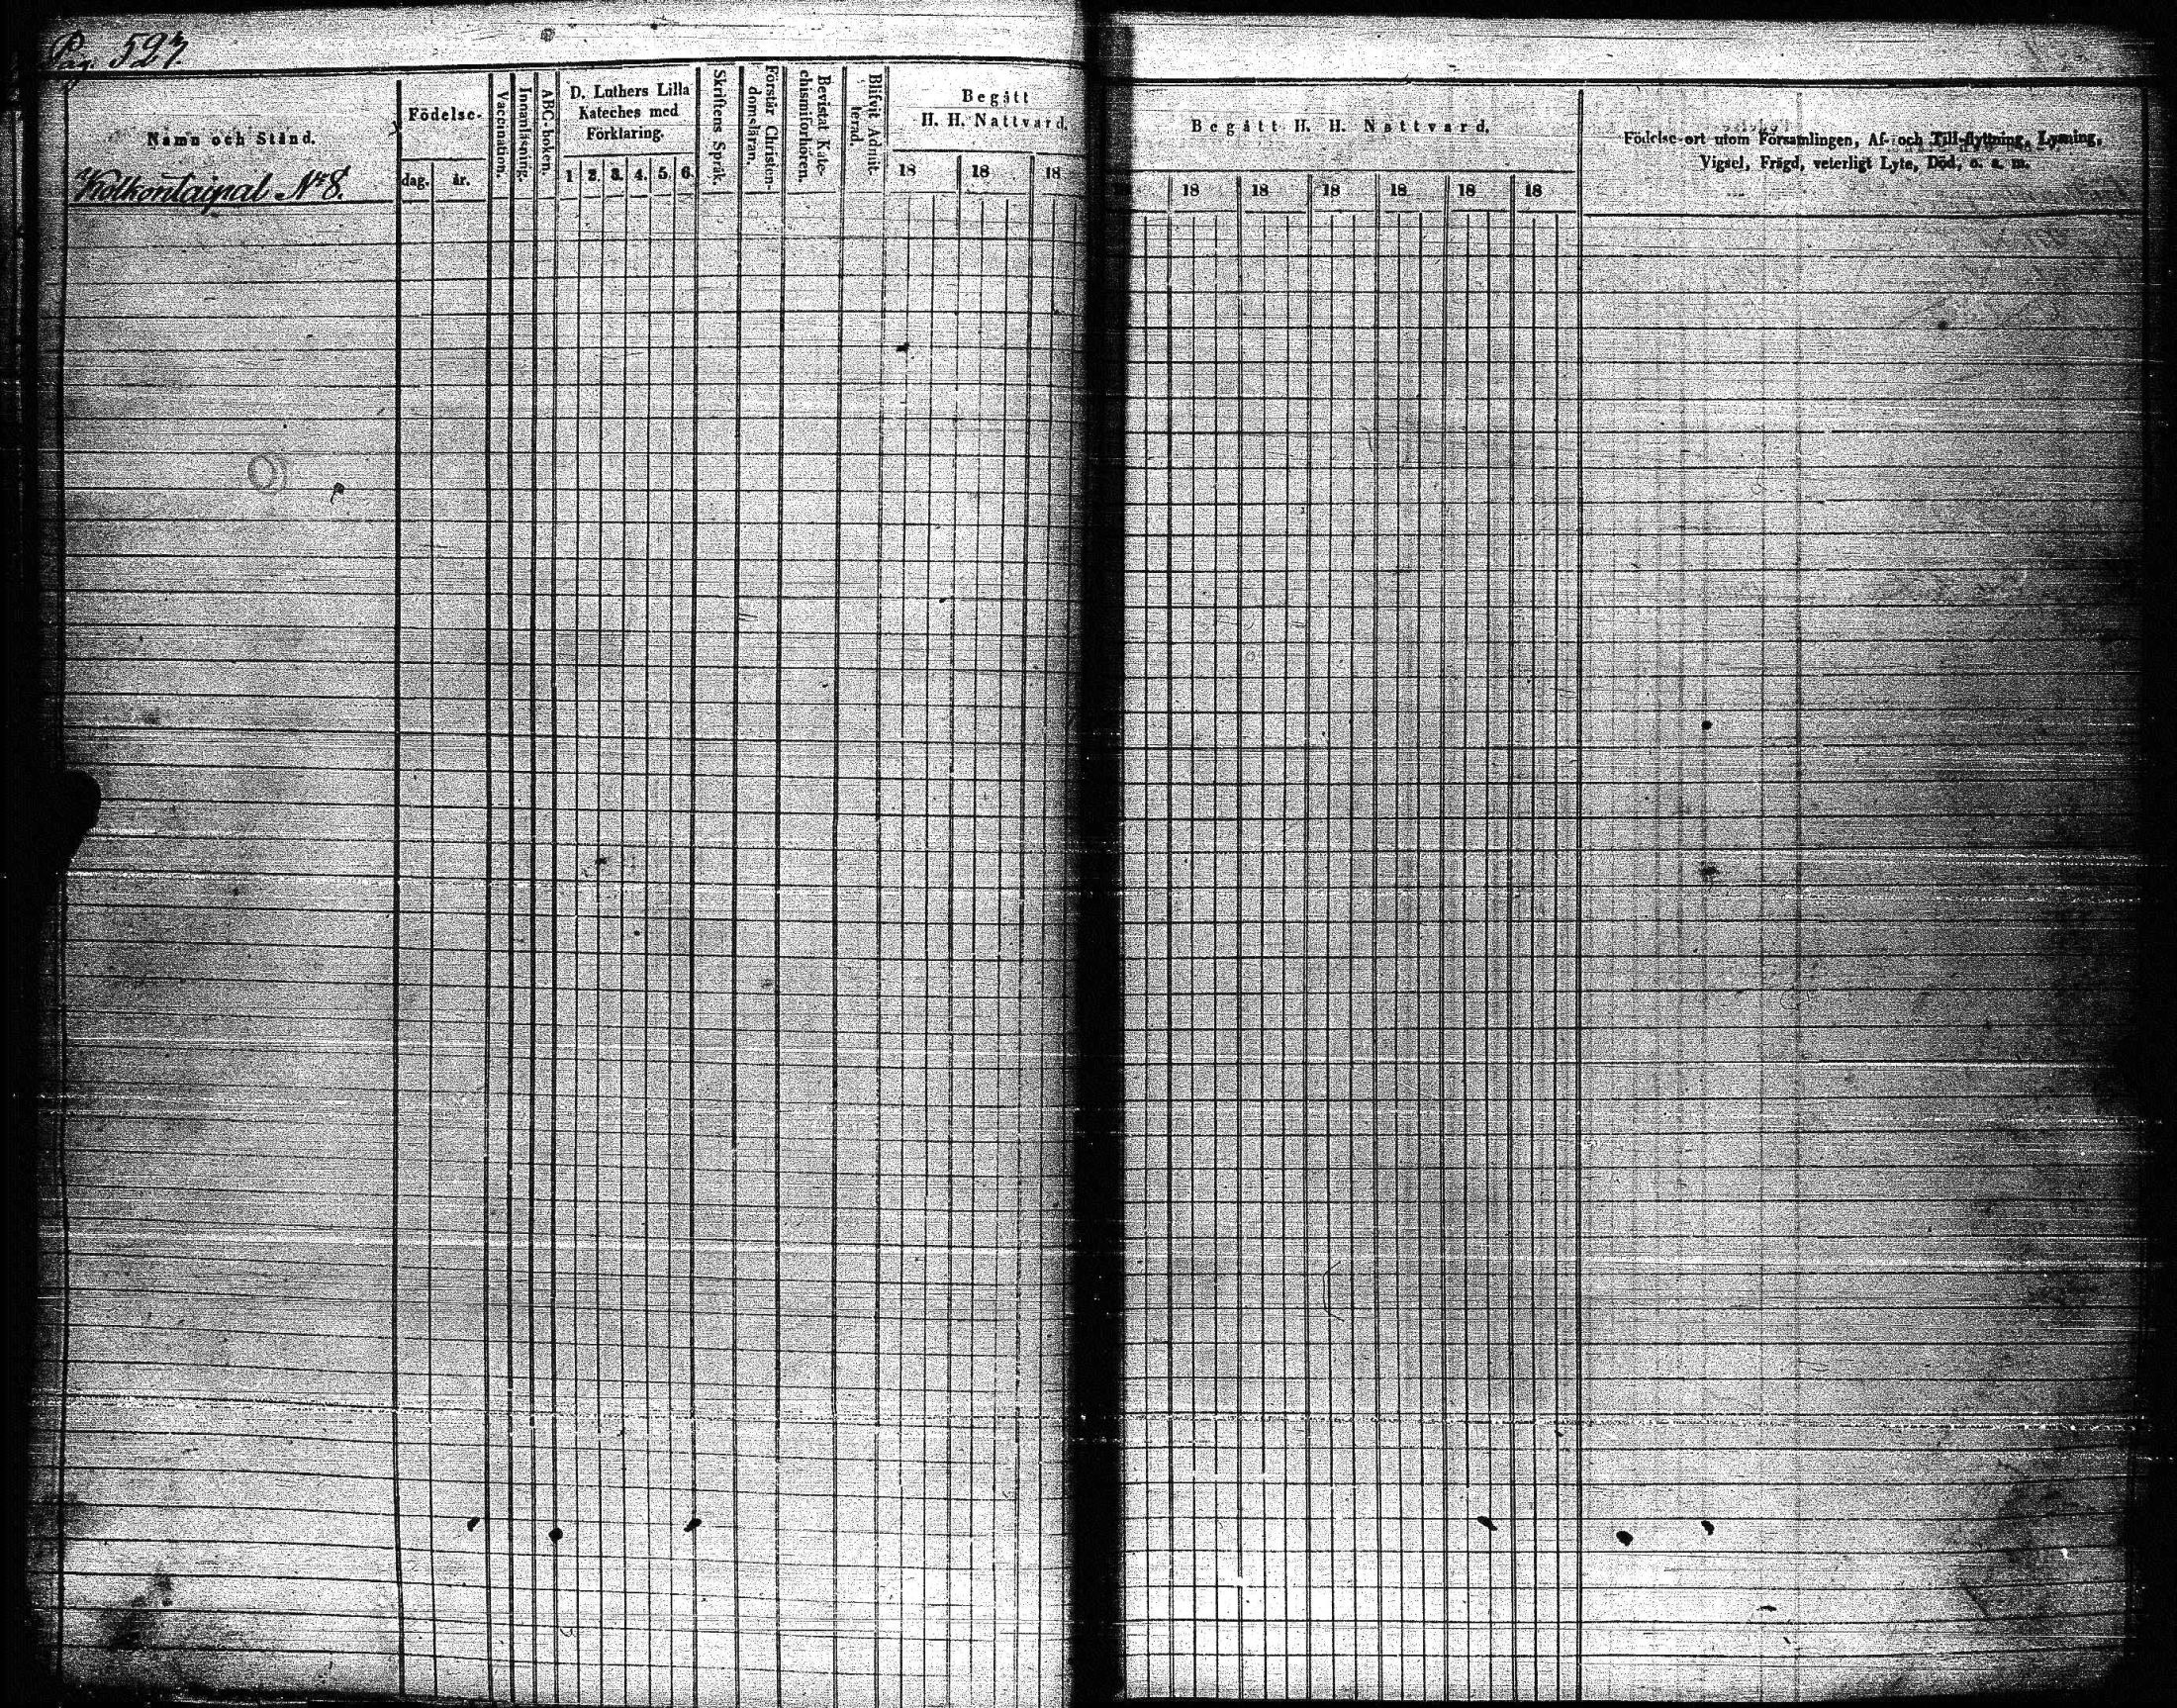 Pag. 527.
Namn och Stånd.
Kolkontaipal No 8.
Födelse-
dag. år.
Vaccination.
Innanläsning.
ABC-boken.
D. Luthers Lilla
Kateches med
Förklaring.
1 2. 3. 4. 5. 6.
Skriftens Språk.
Förstår Christen-
domsläran.
Bevistat Kate-
chismiförhören.
Blifvit Admit-
terad.
Begått
H. H. Nattvard.
18 18 18
Begått H. H. Nattvard.
18 18 18 18 18 18
Födelse-ort utom Församlingen, Af- och Till-flyttning, Lysning,
Vigsel, Frägd, veterligt Lyte, Död, o. s. m.